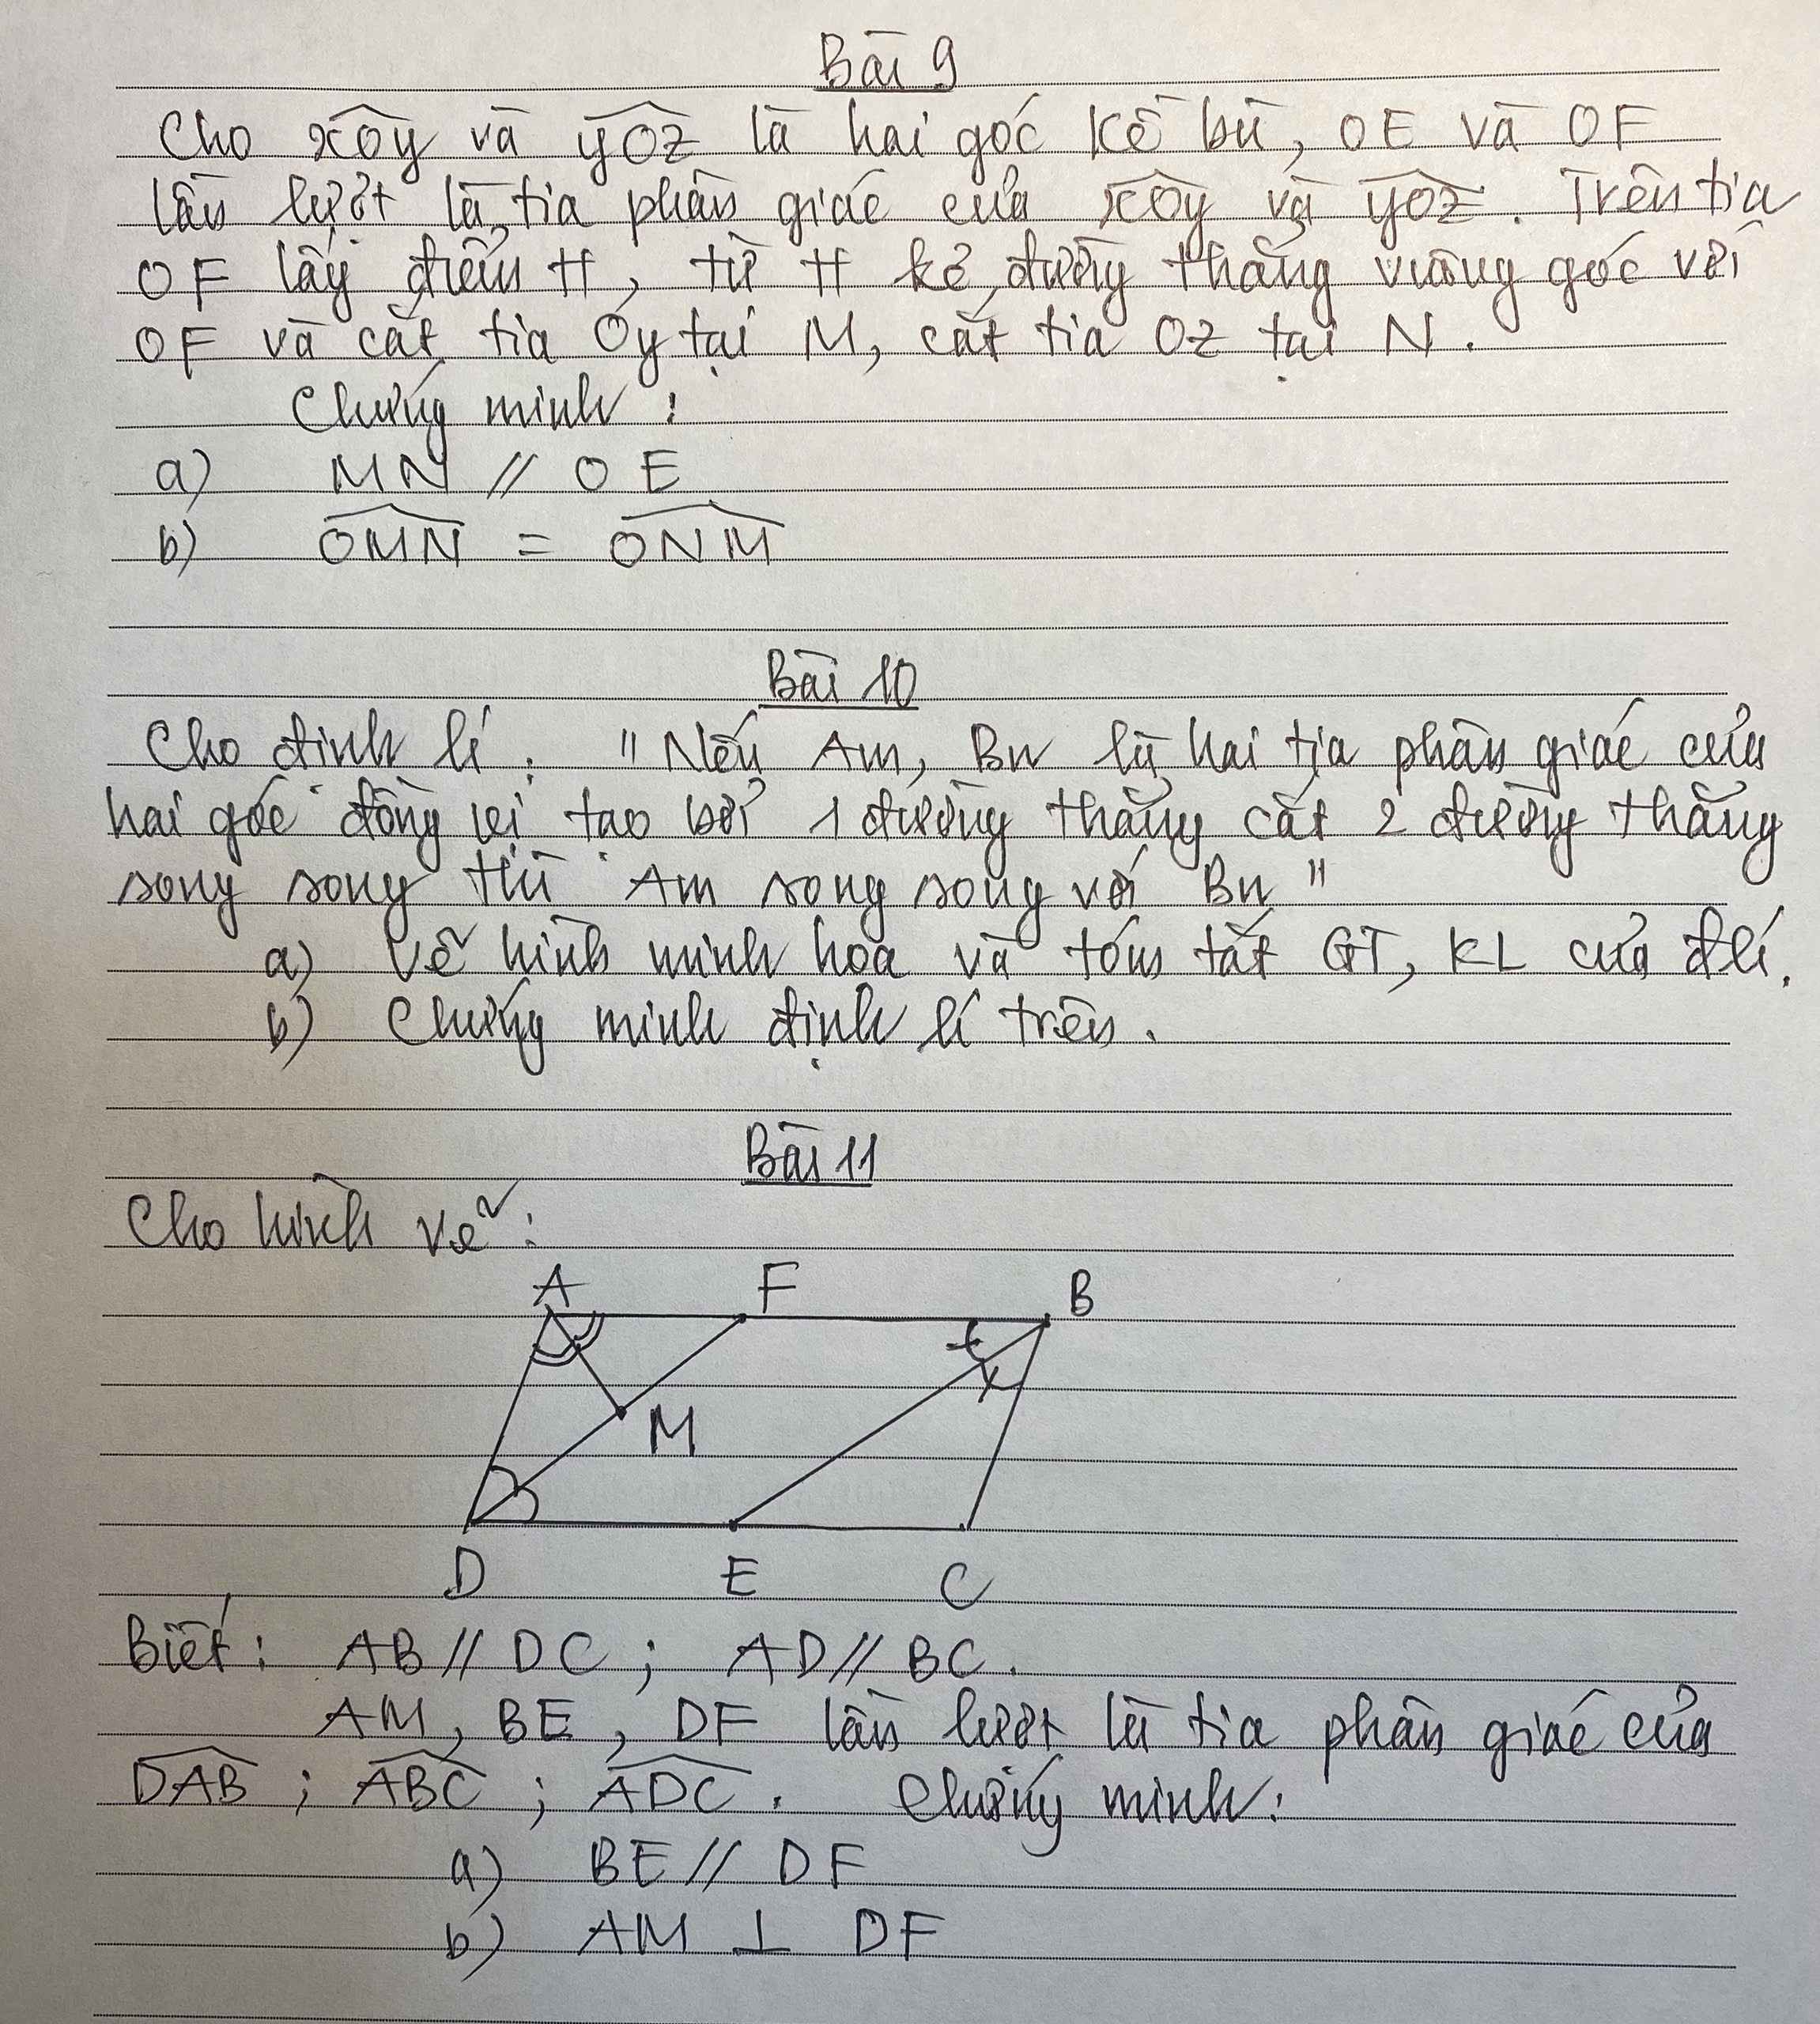 Bài 9
Cho xÔy và yÔz là hai góc kề bù, OE và OF
lần lượt là tia phân giác của xÔy và yÔz. Trên tia
OF lấy điểm H, từ H kẻ đường thẳng vuông góc với
OF và cắt tia Oy tại M, cắt tia Oz tại N.
Chứng minh:
a) MN // OE
b) \widehat{OMN} = \widehat{ONM}
Bài 10
Cho định lí: "Nếu Am, Bn là hai tia phân giác của
hai góc đồng vị tạo bởi 1 đường thẳng cắt 2 đường thẳng
song song thì Am song song với Bn"
a) Vẽ hình minh hoạ và tóm tắt GT, KL của đlí.
b) Chứng minh định lí trên.
Bài 11
Cho hình vẽ:
A F B
M
D E C
Biết: AB // DC; AD // BC.
AM, BE, DF lần lượt là tia phân giác của
\widehat{DAB}; \widehat{ABC}; \widehat{ADC}. Chứng minh:
a) BE // DF
b) AM ⊥ DF